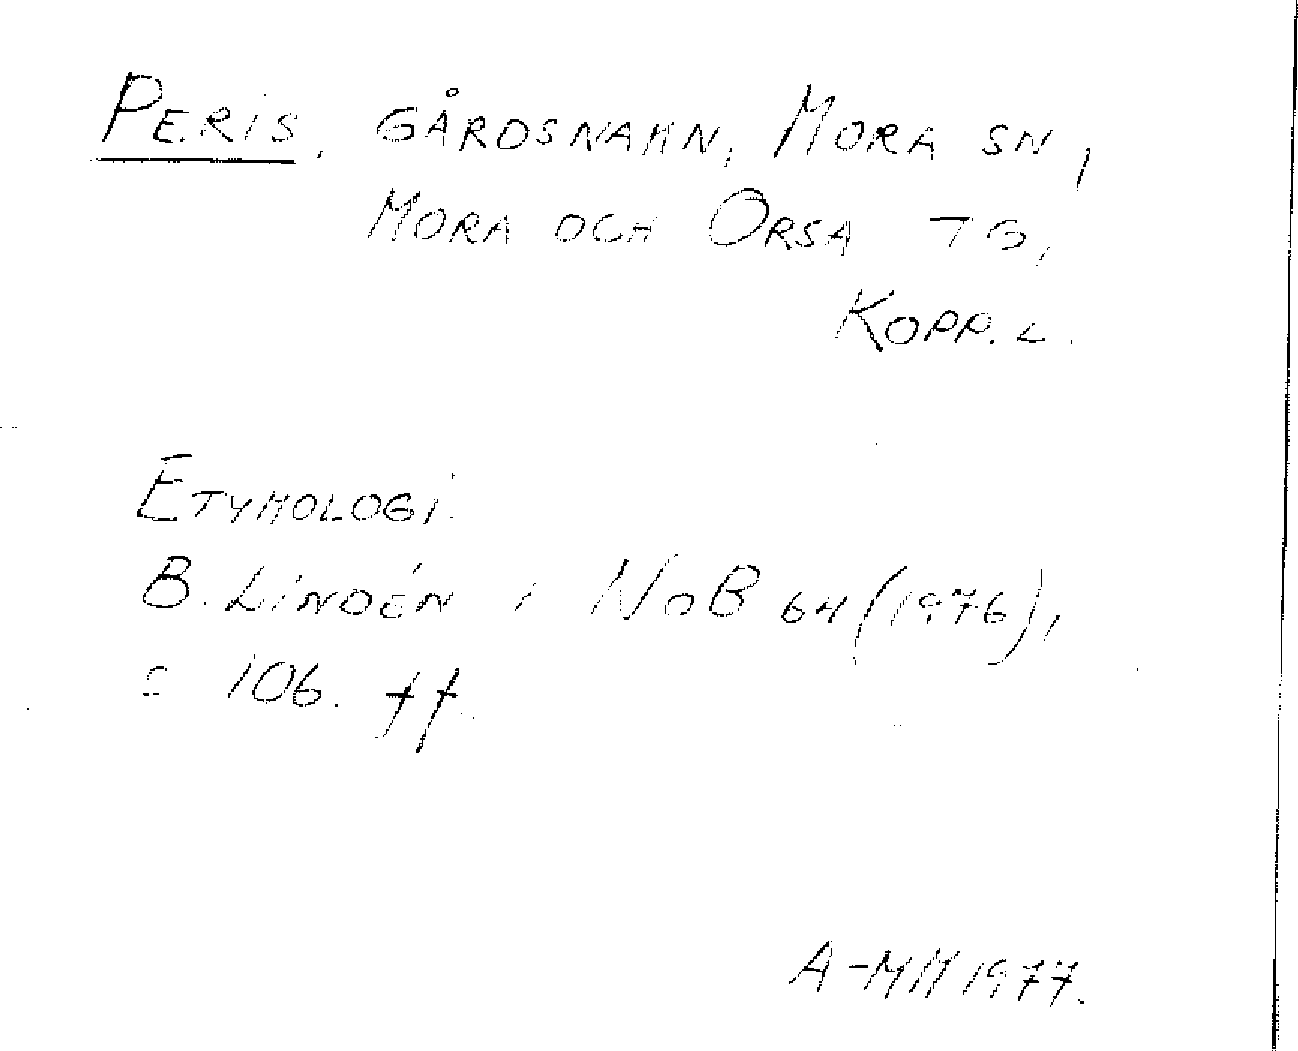 PERIS, GÅRDSNAMN, MORA SN,
MORA OCH ORSA TG,
KOPP. L.
ETYMOLOGI.
B. LINDÉN i NoB 64 (1976),
s 106. ff.
A-MH 1977.